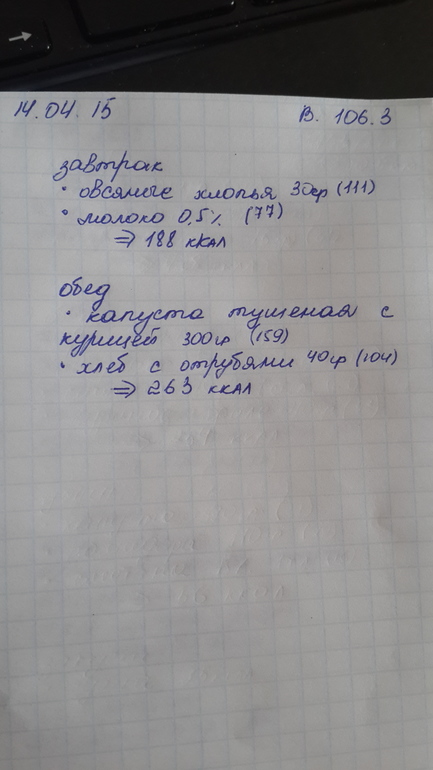 14.04.15 В. 106.3
завтрак
• овсяные хлопья 30гр (111)
• молоко 0,5% (77)
⇒ 188 ккал
обед
• капуста тушеная с
курицей 300гр (159)
• хлеб с отрубями 40гр (104)
⇒ 263 ккал